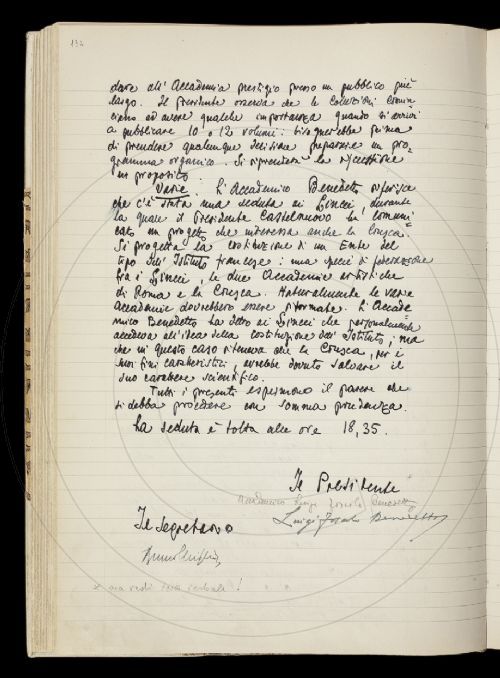 132
dare all'Accademia prestigio presso un pubblico più
largo. Il Presidente osserva che le Collezioni comin=
ciano ad avere qualche importanza quando si arrivi
a pubblicare 10 o 12 volumi: bisognerebbe prima
di prendere qualunque decisione preparare un pro=
gramma organico. Si riprenderà la discussione
in proposito.
Varie: L'Accademico Benedetto riferisce
che c'è stata una seduta ai Lincei durante
la quale il Presidente Castelnuovo ha comuni=
cato un progetto che interessa anche la Crusca.
Si progetta la costituzione di un Ente del
tipo dell'Istituto francese: una specie di federazione
fra i Lincei, le due Accademie artistiche
di Roma e la Crusca. Naturalmente le varie
Accademie dovrebbero essere riformate. L'Accade=
mico Benedetto ha detto ai Lincei che personalmente
accedeva all'idea della costituzione dell'Istituto; ma
che in questo caso riteneva che la Crusca, per i
suoi fini caratteristici, avrebbe dovuto salvare il
suo carattere scientifico.
Tutti i presenti esprimono il parere che
si debba procedere con somma prudenza.
La seduta è tolta alle ore 18,35.
Il Presidente
Accademico Luigi Foscolo Benedetto
Luigi Foscolo Benedetto
Il Segretario
Bruno Migliorini